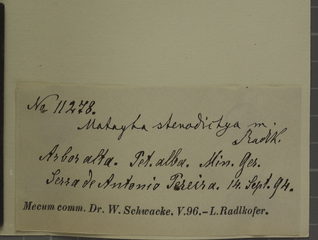 No 11278.
Matayba stenodictya m.
Radlk.
Arbor alta. Pet. alba. Min. Ger.
Serra de Antonio Pereira. 14. Sept. 94.
Mecum comm. Dr. W. Schwacke. V. 96. – L. Radlkofer.